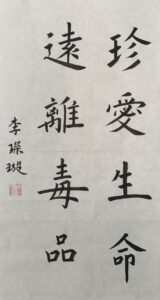 珍愛生命
遠離毒品
李琛璇